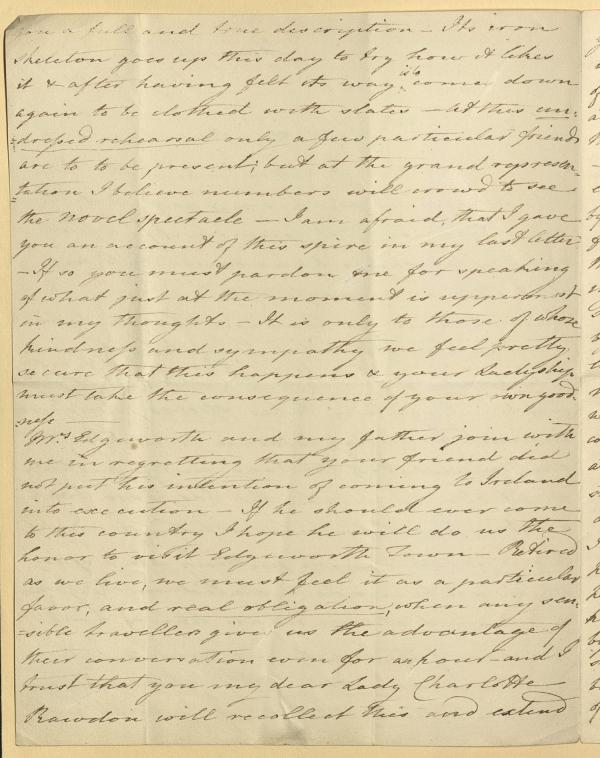 you a full and true description – Its iron
skeleton goes up this day to try how it likes
it & after having felt its way is to come down
again to be clothed with slates – At this un-
=dressed rehearsal only a few particular friends
are to to be present; but at the grand represen-
=tation I believe numbers will crowd to see
the novel spectacle – I am afraid, that I gave
you an account of this spire in my last letter
– If so you must pardon me for speaking
of what just at the moment is uppermost
in my thoughts – It is only to those of whose
kindness and sympathy we feel pretty
secure that this happens & your Ladyship
must take the consequence of your own good
=ness
Mrs Edgeworth and my father join with
me in regretting that your friend did
not put his intention of coming to Ireland
into execution – If he should ever come
to this country I hope he will do us the
honor to visit Edgeworth Town – Retired
as we live, we must feel it as a particular
favor, and real obligation, when any sen-
=sible travellers give us the advantage of
their conversation even for an hour – and I
trust that you my dear Lady Charlotte
Rawdon will recollect this and extend